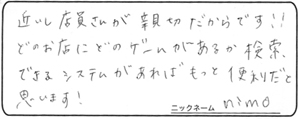 近いし店員さんが親切だからです!!
どのお店にどのゲームがあるか検索
できるシステムがあればもっと便利だと
思います!
ニックネーム nimo